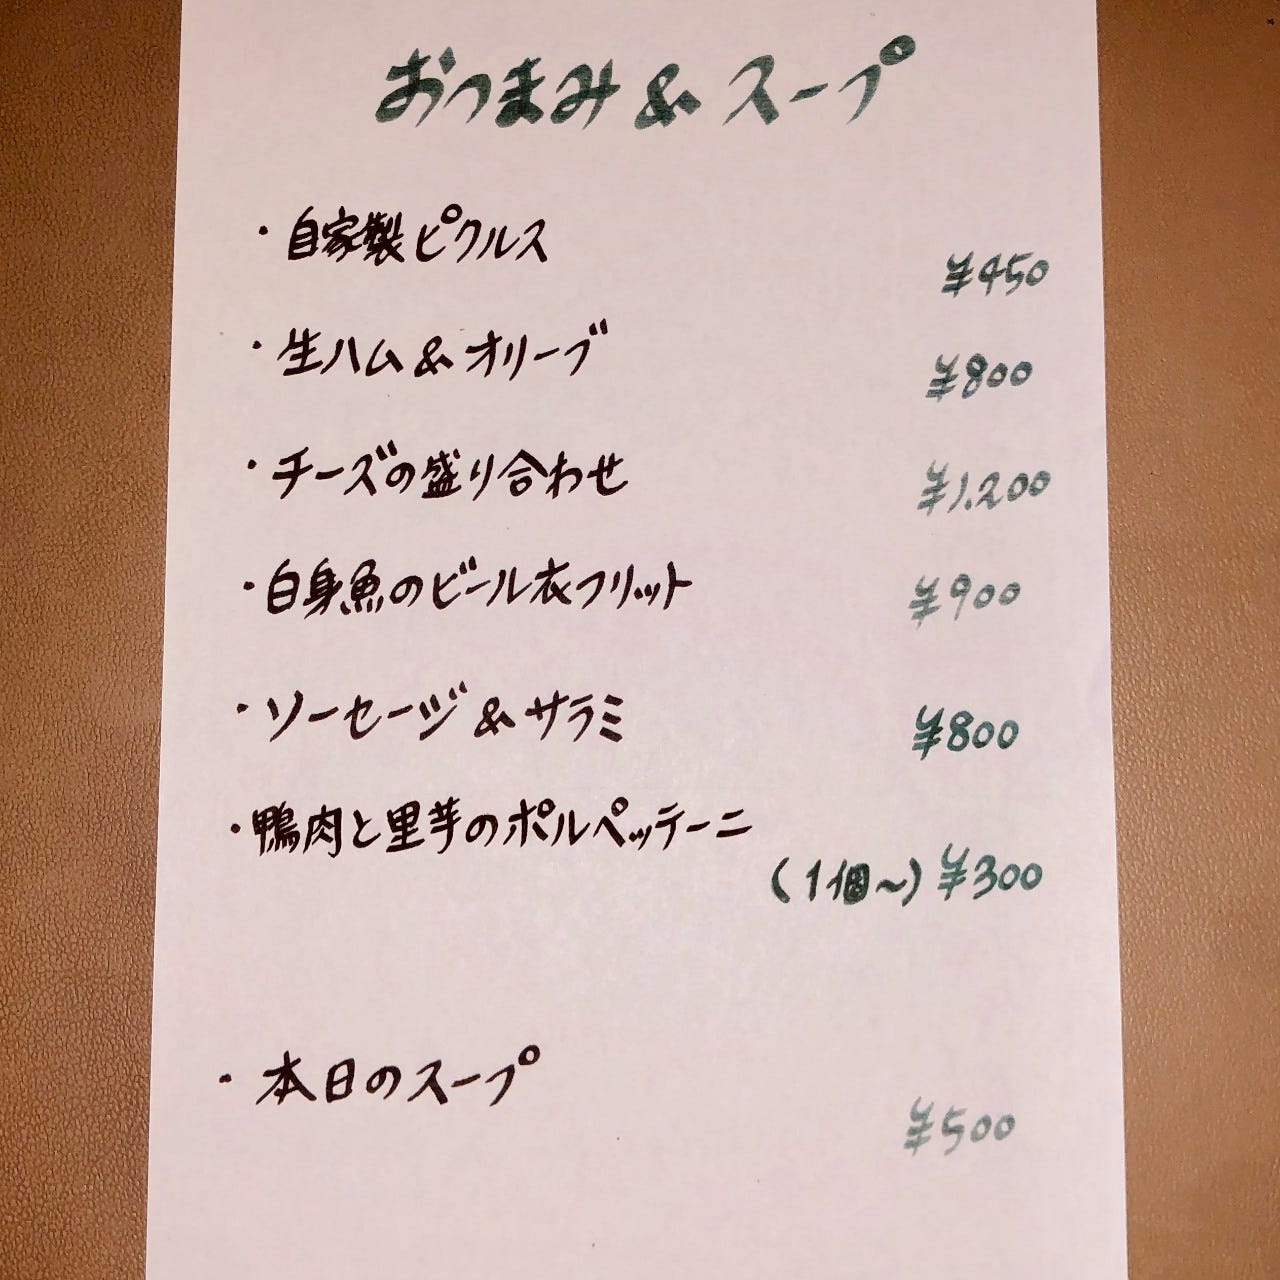 おつまみ&スープ
・自家製ピクルス
¥450
・生ハム&オリーブ
¥800
・チーズの盛り合わせ
¥1.200
・白身魚のビール衣フリット
¥900
・ソーセージ&サラミ
¥800
・鴨肉と里芋のポルペッテーニ
(1個~) ¥300
・本日のスープ
¥500